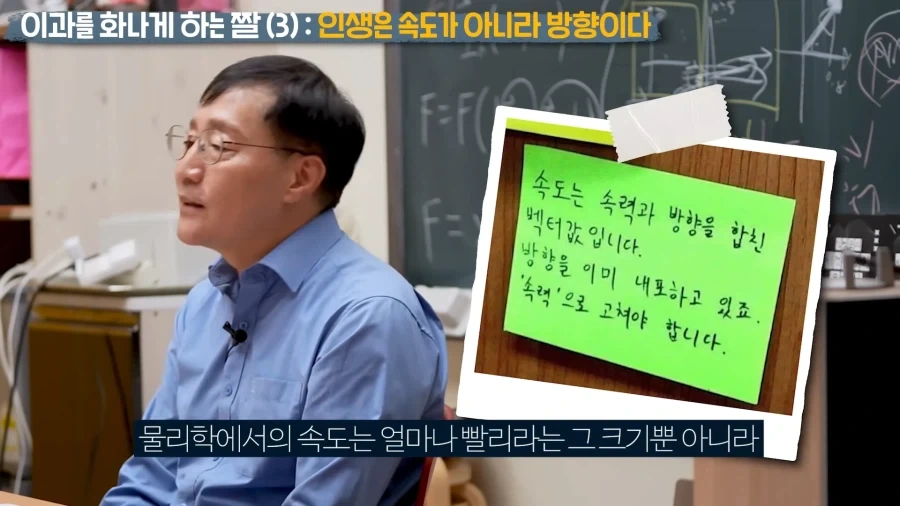 이과를 화나게 하는 짤 (3) : 인생은 속도가 아니라 방향이다
F=F(
F=
속도는 속력과 방향을 합친
벡터값입니다.
방향을 이미 내포하고 있죠.
'속력'으로 고쳐야 합니다.
물리학에서의 속도는 얼마나 빨리라는 그 크기뿐 아니라